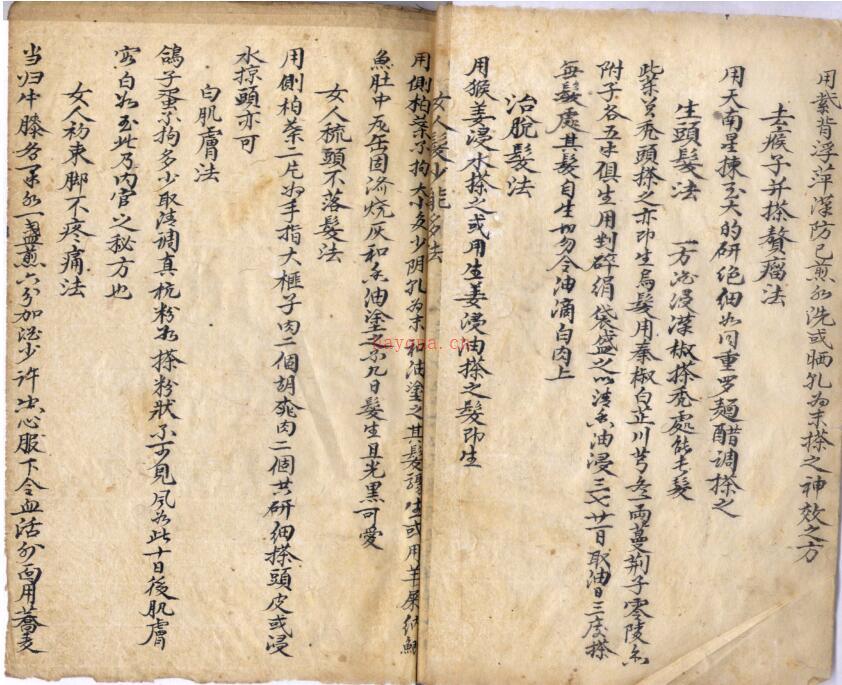 用紫背浮萍漢防己煎水洗或晒乹為末搽之神效之方
去瘊子并搽贅瘤法
用天南星揀至大的研絕細如同重罗麺醋調搽之
生頭髮法 一方酒浸漢椒搽禿處能生髮
此葉曾禿頭搽之亦即生烏髮用秦椒白芷川芎各一両蔓荆子零陵香
附子各五半俱生用剉碎絹袋盛之以清香油浸三七廿一日取油日三度搽
無髮處其髮自生切勿令油滴白肉上
治脫髮法
用猴姜浸水搽之或用生姜浸油搽之髮即生
女人髮少能多法
用側柏葉不拘大小多少阴乹為末和油塗之其髮驟生或用羊屎納鯽
魚肚中瓦缶固済烧灰和香油塗之九日髮生且光黑可愛
女人梳頭不落髮法
用側柏葉一片如手指大榧子肉二個胡桃肉二個共研细搽頭皮或浸
水掠頭亦可
白肌膚法
鴿子蛋不拘多少取清調真杭粉如搽粉狀不可見风如此十日後肌膚
白如玉此乃内官之秘方也
女人初束脚不疼痛法
当归牛膝各一水一盞煎六分加酒少許空心服下令血活外面用蕎麦